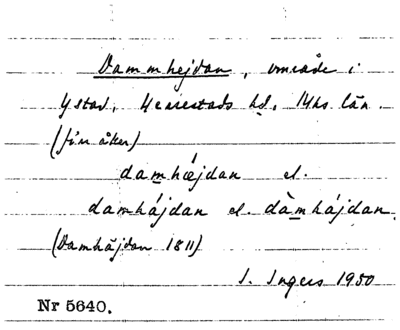 Dammhejdan, område i
Ystad, Herrestads hd, Mhs län.
(förr åker)
damhǽjdan el.
damhájdan el. dàmhájdan.
(Damhäjdan 1811)
I. Ingers 1950
Nr 5640.